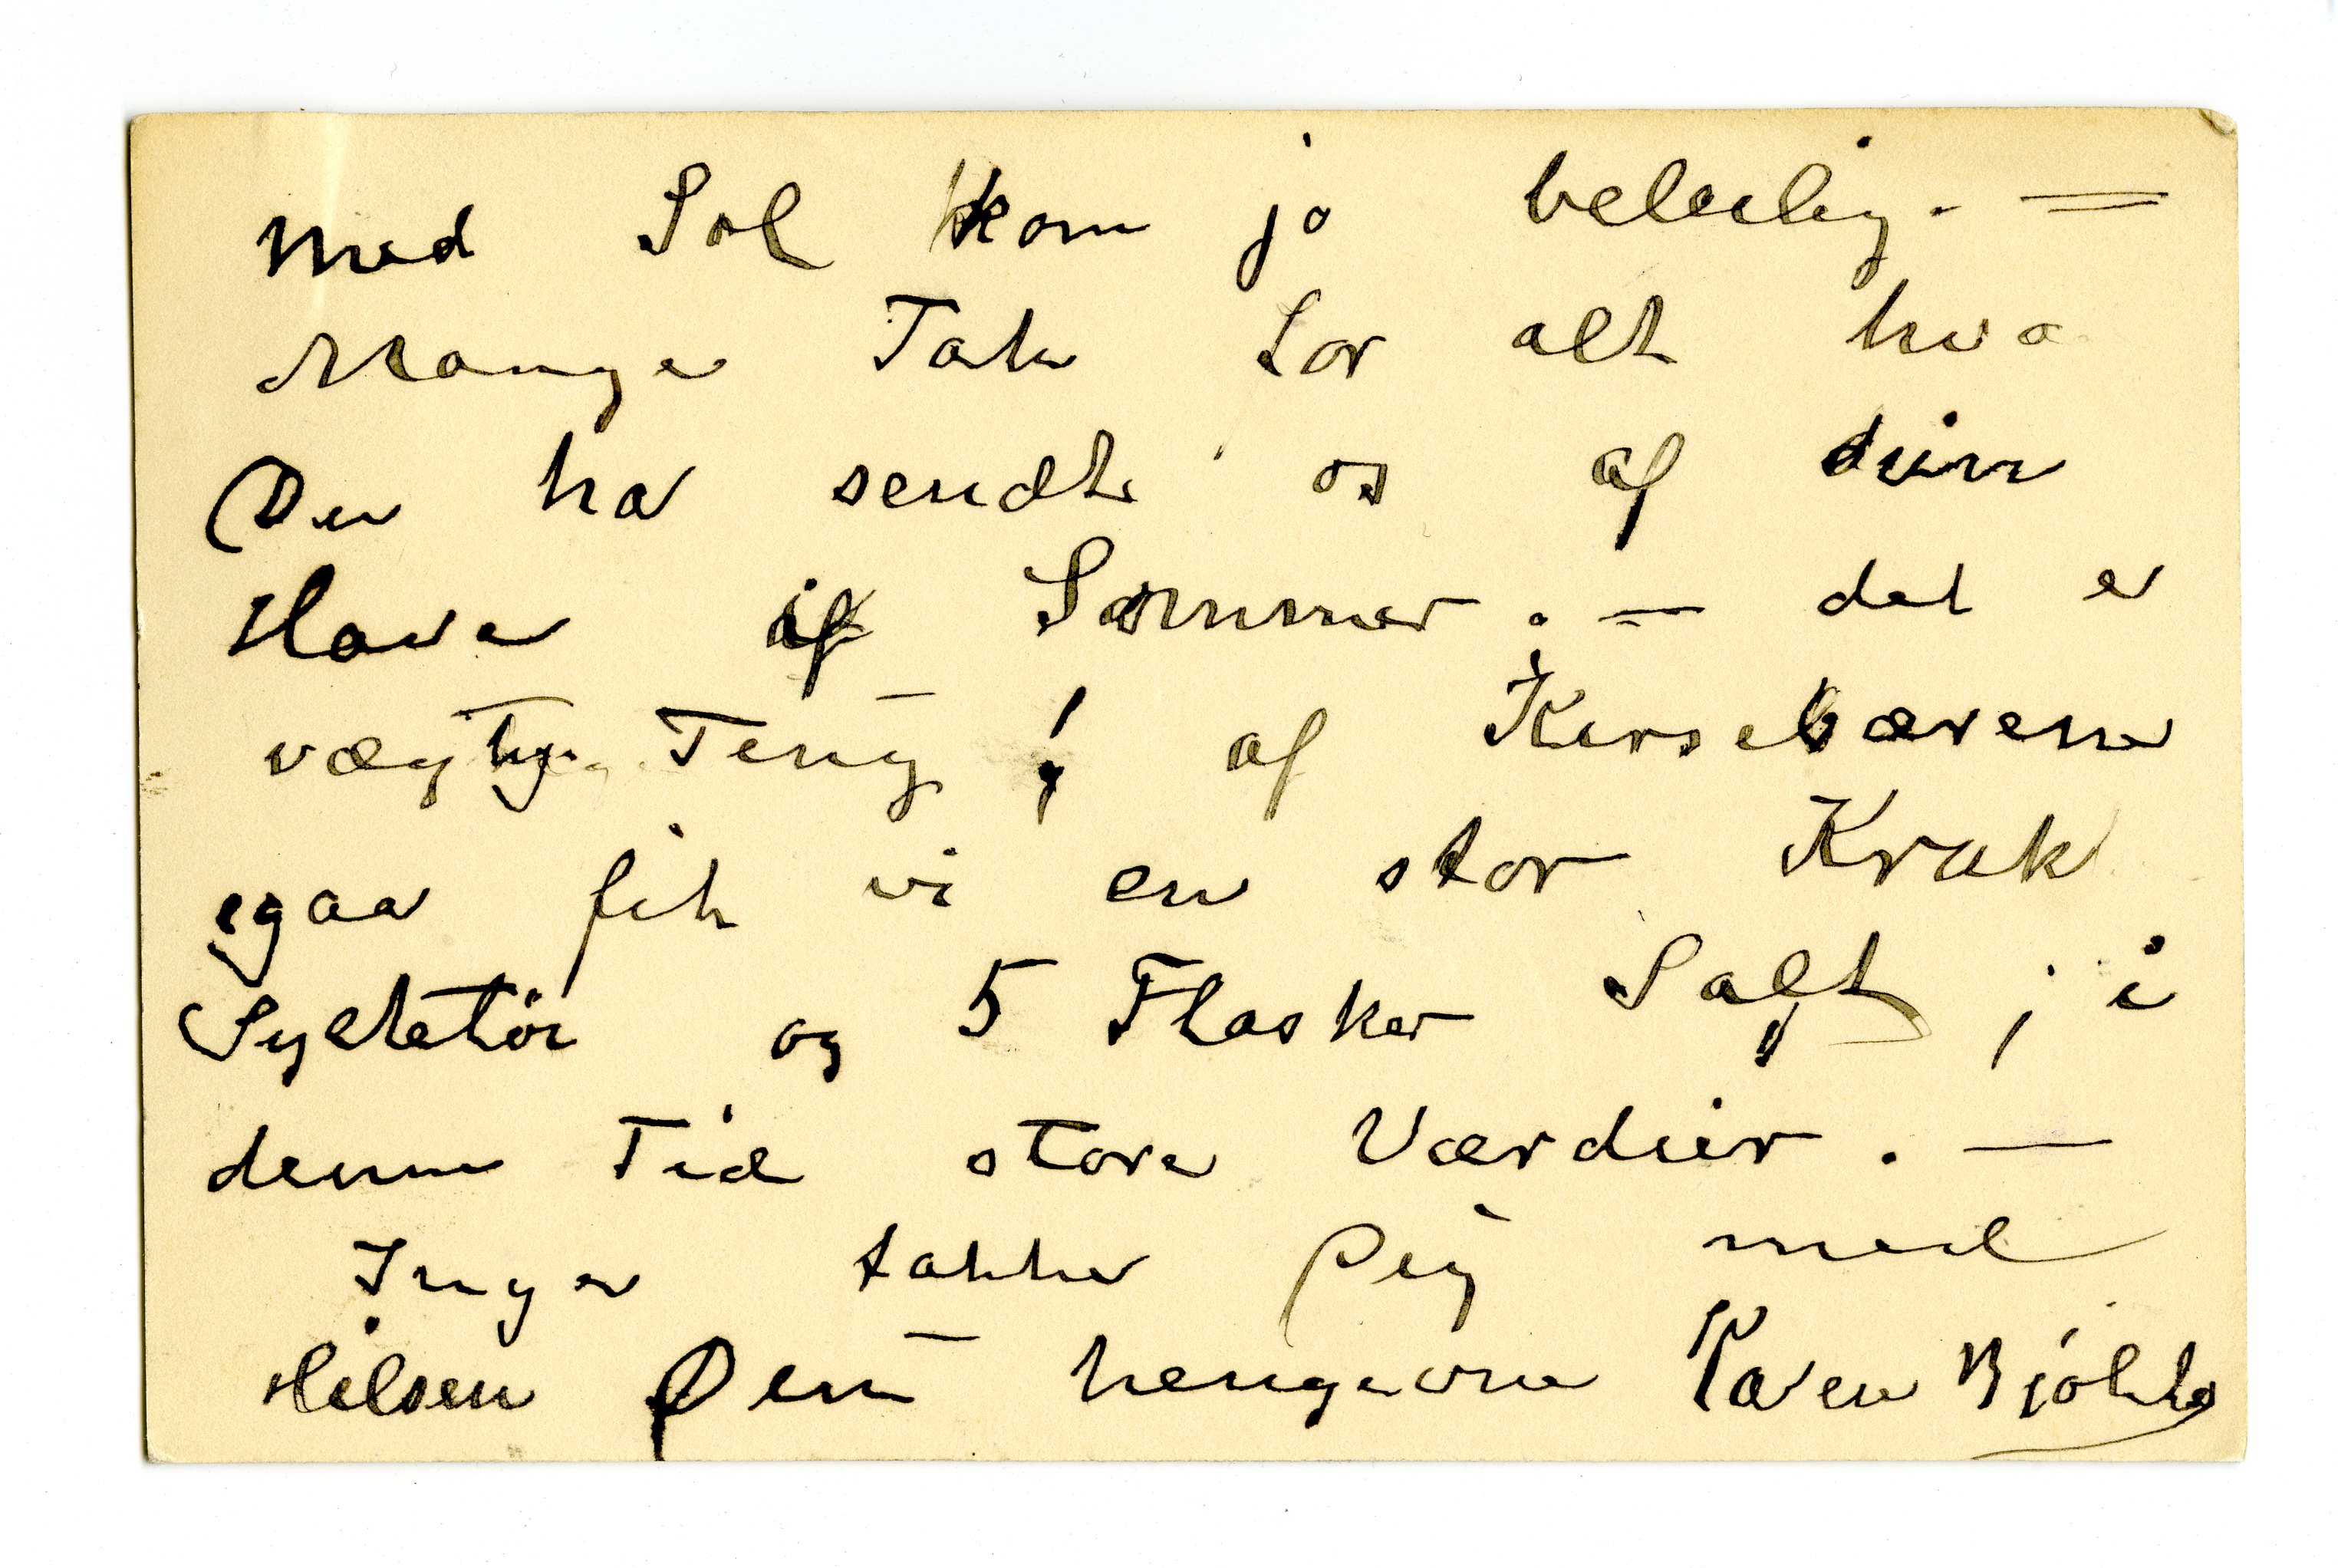 med Sol kom jo beleilig. =
Mange Tak for alt hva
Du har sendt os af din
Have i Sommer. — det er
vægtig Ting! af Kirsebærene
gaa fik vi en stor Kruk
Syltetöi og 5 Flasker Saft; i
denne Tid store Værdier. —
Inger takker Dig med
Hilsen Din hengivne Karen Bjölstad